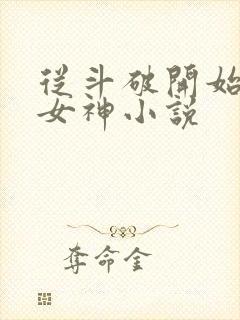 從斗破開始
女神小説
奪命金